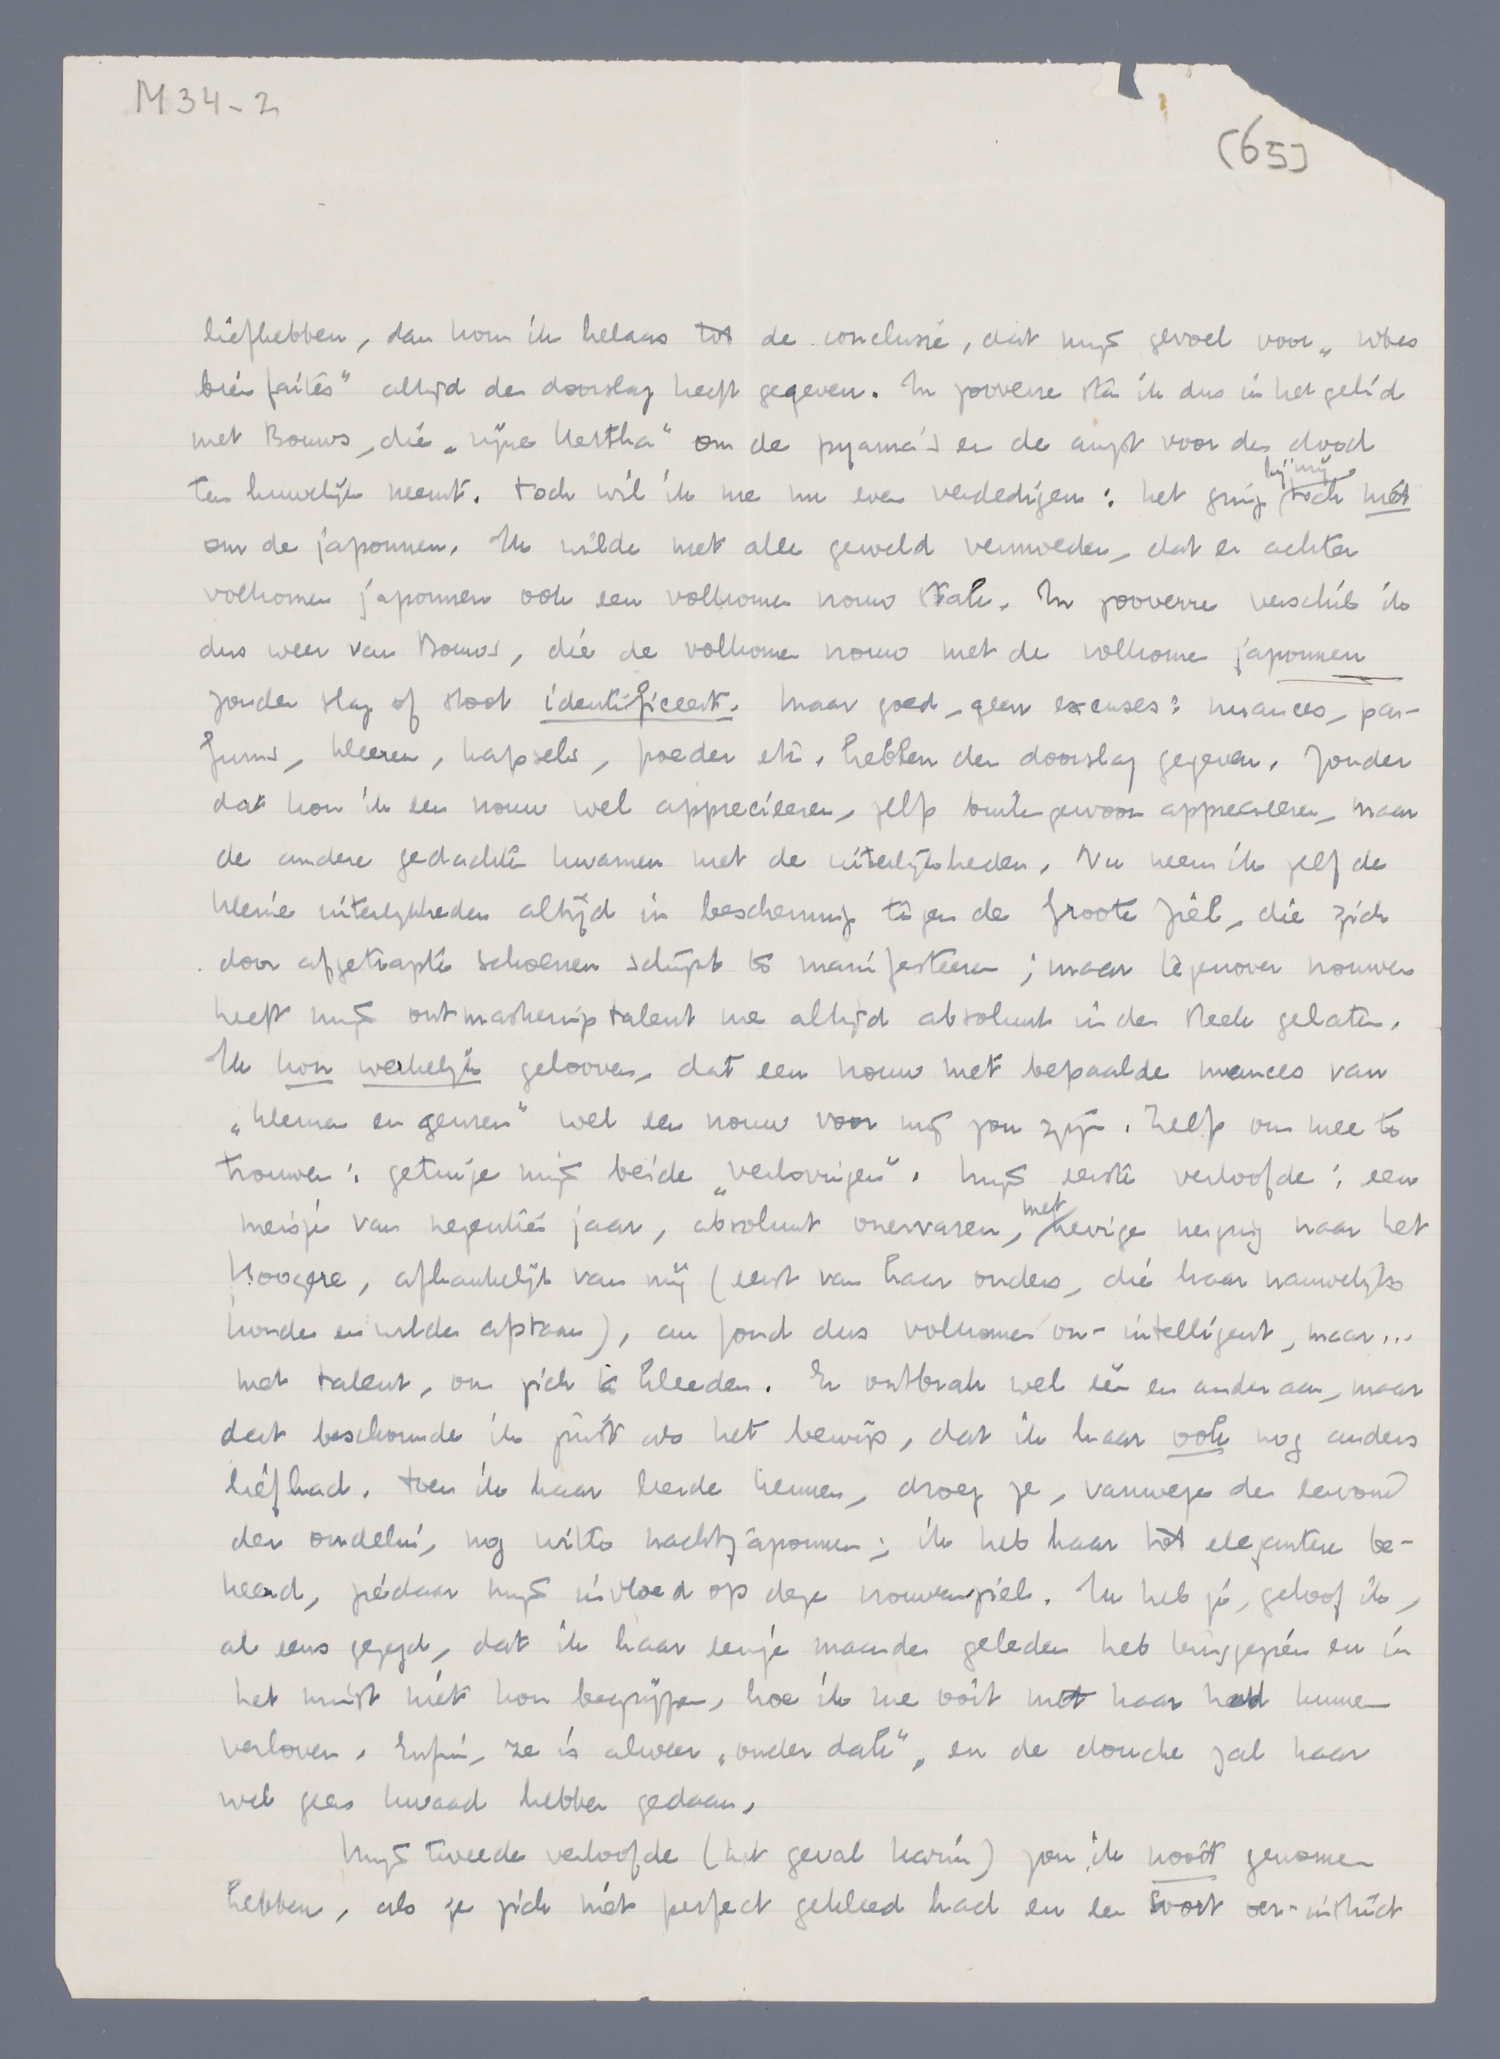 M 34-2
(65)
liefhebben, dan kom ik helaas tot de conclusie, dat mijn gevoel voor „robes
bien faites" altijd den doorslag heeft gegeven. In zooverre sta ik dus in het gelid
met Bouws, die „zijne Hertha" om de pyama's en de angst voor den dood
ten huwelijk neemt. Toch wil ik me nu even verdedigen: het ging bij mij toch niet
om de japonnen. Ik wilde met alle geweld vermoeden, dat er achter
volkomen japonnen ook een volkomen vrouw stak. In zooverre verschil ik
dus weer van Bouws, die de volkomen vrouw met de volkomen japonnen
zonder slag of stoot identificeert. Maar goed, geen excuses: nuances, par-
fums, kleeren, kapsels, poeder etc. hebben den doorslag gegeven. Zonder
dat kon ik een vrouw wel apprecieeren, zelfs buitengewoon apprecieeren, maar
de andere gedachten kwamen met de uiterlijkheden. Nu neem ik zelf de
kleine uiterlijkheden altijd in bescherming tegen de Groote Ziel, die zich
door afgetrapte schoenen schijnt te manifesteeren; maar tegenover vrouwen
heeft mijn ontmaskeringstalent me altijd absoluut in den steek gelaten.
Ik kon werkelijk gelooven, dat een vrouw met bepaalde nuances van
„kleuren en geuren" wel een vrouw voor mij zou zijn. Zelfs om mee te
trouwen: getuige mijn beide „verlovingen". Mijn eerste verloofde: een
meisje van negentien jaar, absoluut onervaren, met hevige neiging naar het
Hoogere, afhankelijk van mij (eerst van haar ouders, die haar nauwelijks
konden en wilden afstaan), au fond dus volkomen on-intelligent, maar...
met talent, om zich te kleeden. Er ontbrak wel één en ander aan, maar
dat beschouwde ik juist als het bewijs, dat ik haar ook nog anders
liefhad. Toen ik haar leerde kennen, droeg ze, vanwege den
der oudelui, nog witte nachtjaponnen; ik heb haar tot elegantere be-
keerd, ziedaar mijn invloed op deze vrouwenziel. Ik heb je, geloof ik,
al eens gezegd, dat ik haar eenige maanden geleden heb teruggezien en in
het minst niet kon begrijpen, hoe ik me ooit met haar had kunnen
verloven. Enfin, ze is alweer „onder dak", en de douche zal haar
wel geen kwaad hebben gedaan.
Mijn tweede verloofde (het geval Karin) zou ik nooit genomen
hebben, als ze zich niet perfect gekleed had en een soort oer-instinct